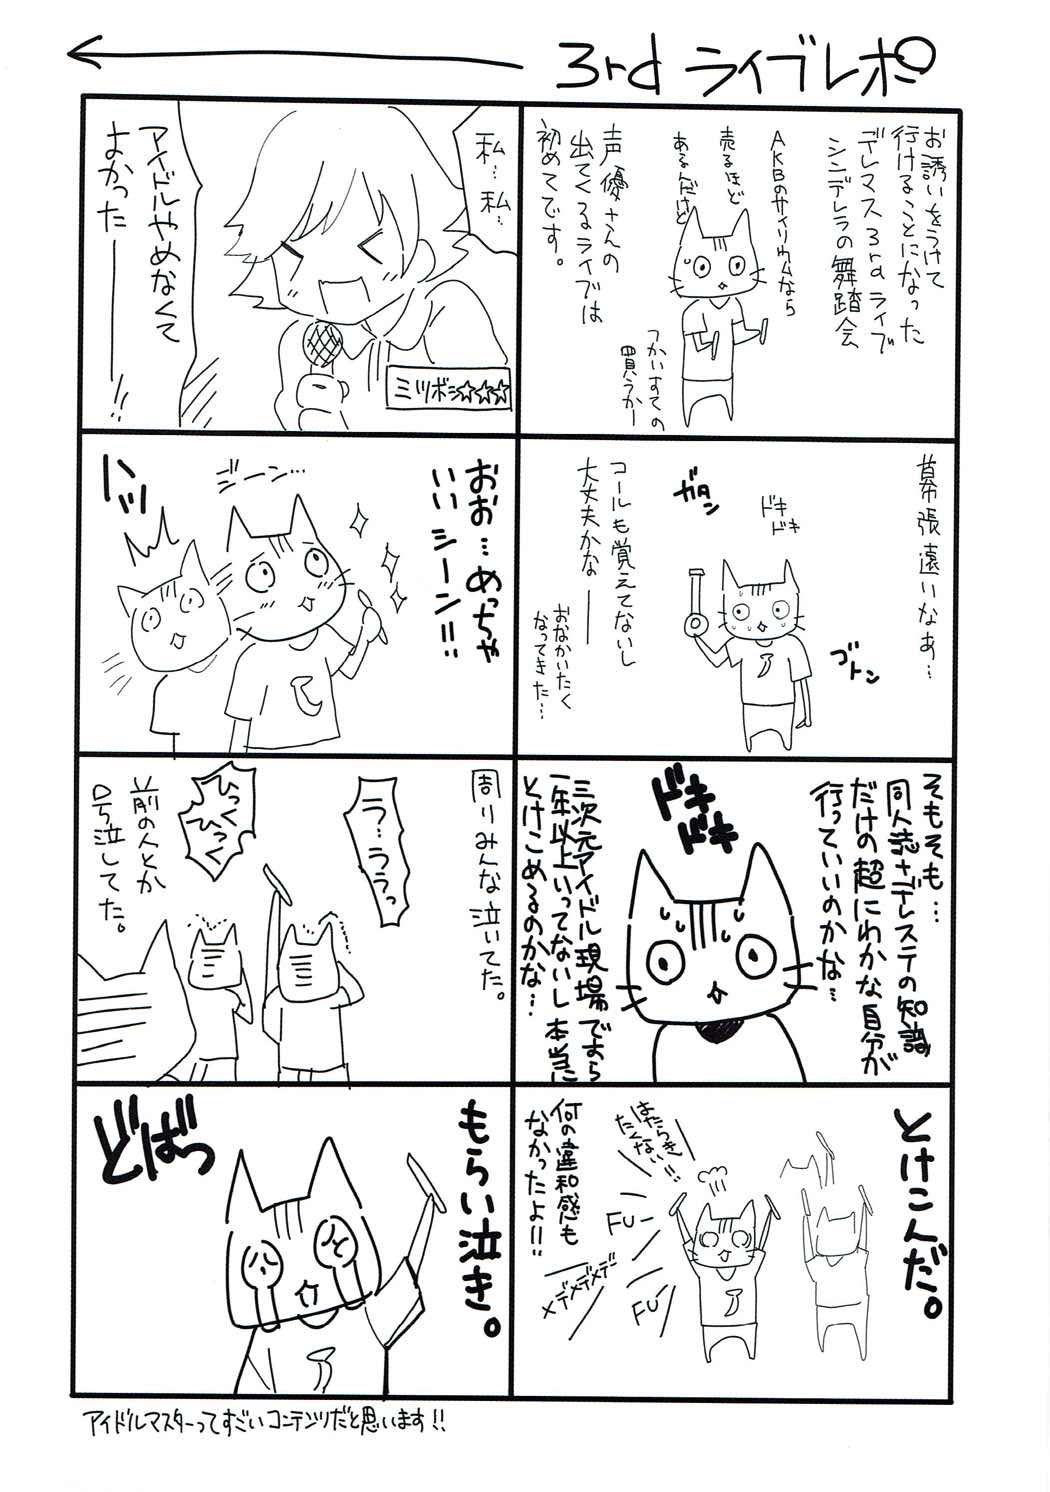 3rd ライブレポ
お誘いをうけて
行けることになった
デレマス3rdライブ
シンデレラの舞踏会
AKBのサイリウムなら
売るほど
あるんだけど
声優さんの
出てくるライブは
初めてです。
つかいすての
買うかー
幕張遠いなぁ…
ドキ
ドキ
ガタン
ゴトン
コールも覚えてないし
大丈夫かな──
おなかいたく
なってきた…
そもそも…
同人誌+デレステの知識
だけの超にわかな自分が
行っていいのかな…
ドキ
ドキ
三次元アイドル現場ですら
一年以上いってないし本当に
とけこめるのかな…
とけこんだ。
はたらき
たくない!!
FU-
FU-
メデメデメデ
何の違和感も
なかったよ!!
私…
私…
アイドルやめなくて
よかった───!!
ミツボシ☆☆★
おお…めっちゃ
いいシーン!!
ジーン…
ハッ
周りみんな泣いてた。
う…ううっ
ひっく
ひっく
前の人とか
号泣してた。
もらい泣き。
どばっ
アイドルマスターってすごいコンテンツだと思います!!